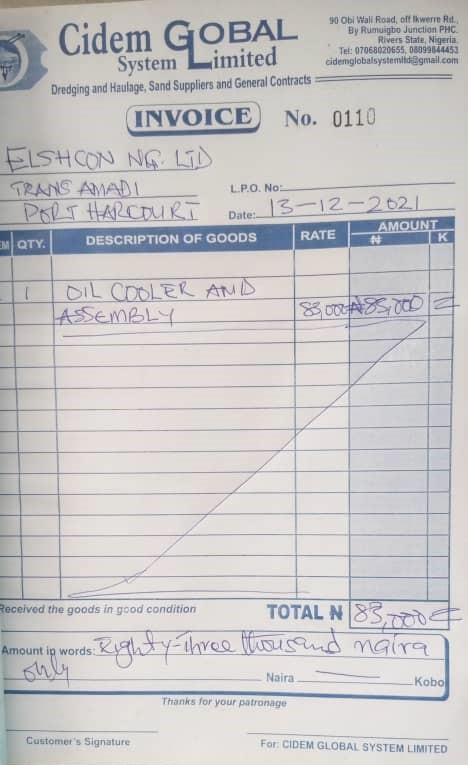 Cidem GOBAL
System Limited
90 Obi Wali Road, off Ikwerre Rd.,
By Rumuigbo Junction PHC.
Rivers State, Nigeria.
Tel: 07068020655, 08099844453
cidemglobalsystemltd@gmail.com
Dredging and Haulage, Sand Suppliers and General Contracts
INVOICE No. 0110
ELSHCON NG. LTD
TRANS AMADI
PORT HARCOURT
L.P.O. No:
Date: 13-12-2021
EM QTY. DESCRIPTION OF GOODS RATE AMOUNT
₦ K
1 OIL COOLER AND
ASSEMBLY 83,000 ₦83,000 =
Received the goods in good condition TOTAL ₦ 83,000 =
Amount in words: Eighty-three thousand naira
only Naira Kobo
Thanks for your patronage
Customer's Signature For: CIDEM GLOBAL SYSTEM LIMITED